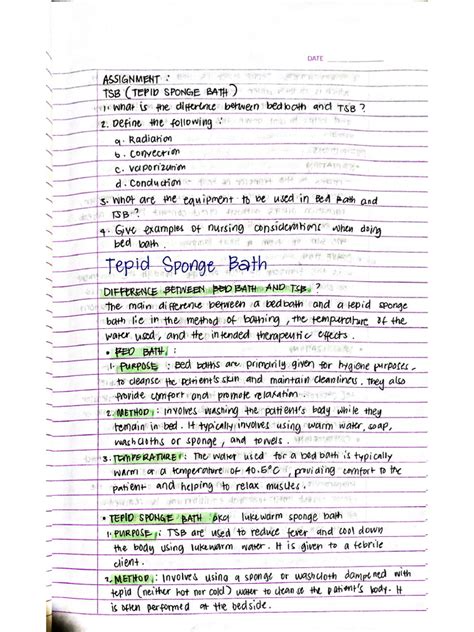 DATE
ASSIGNMENT :
TSB (TEPID SPONGE BATH)
1. What is the difference between bedbath and TSB ?
2. Define the following :
a. Radiation
b. Convection
c. vaporization
d. Conduction
3. What are the equipment to be used in Bed Bath and
TSB ?
4. Give examples of nursing considerations when doing
bed bath.
Tepid Sponge Bath
DIFFERENCE BETWEEN BED BATH AND TSB ?
the main difference between a bedbath and a tepid sponge
bath lie in the method of bathing, the temperature of the
water used, and the intended therapeutic effects.
• BED BATH :
1. PURPOSE : Bed baths are primarily given for hygiene purposes,
to cleanse the patient's skin and maintain cleanlines. they also
provide comfort and promote relaxation.
2. METHOD : Involves washing the patient's body while they
remain in bed. It typically involves using warm water, soap,
washcloths or sponge, and towels.
3. TEMPERATURE : The water used for a bed bath is typically
warm or a temperature of 40.5°C, providing comfort to the
patient and helping to relax muscles.
• TEPID SPONGE BATH aka lukewarm sponge bath
1. PURPOSE : TSB are used to reduce fever and cool down
the body using lukewarm water. It is given to a febrile
client.
2. METHOD : Involves using a sponge or washcloth dampened with
tepid (neither hot nor cold) water to cleanse the patient's body. It
is often performed at the bedside.